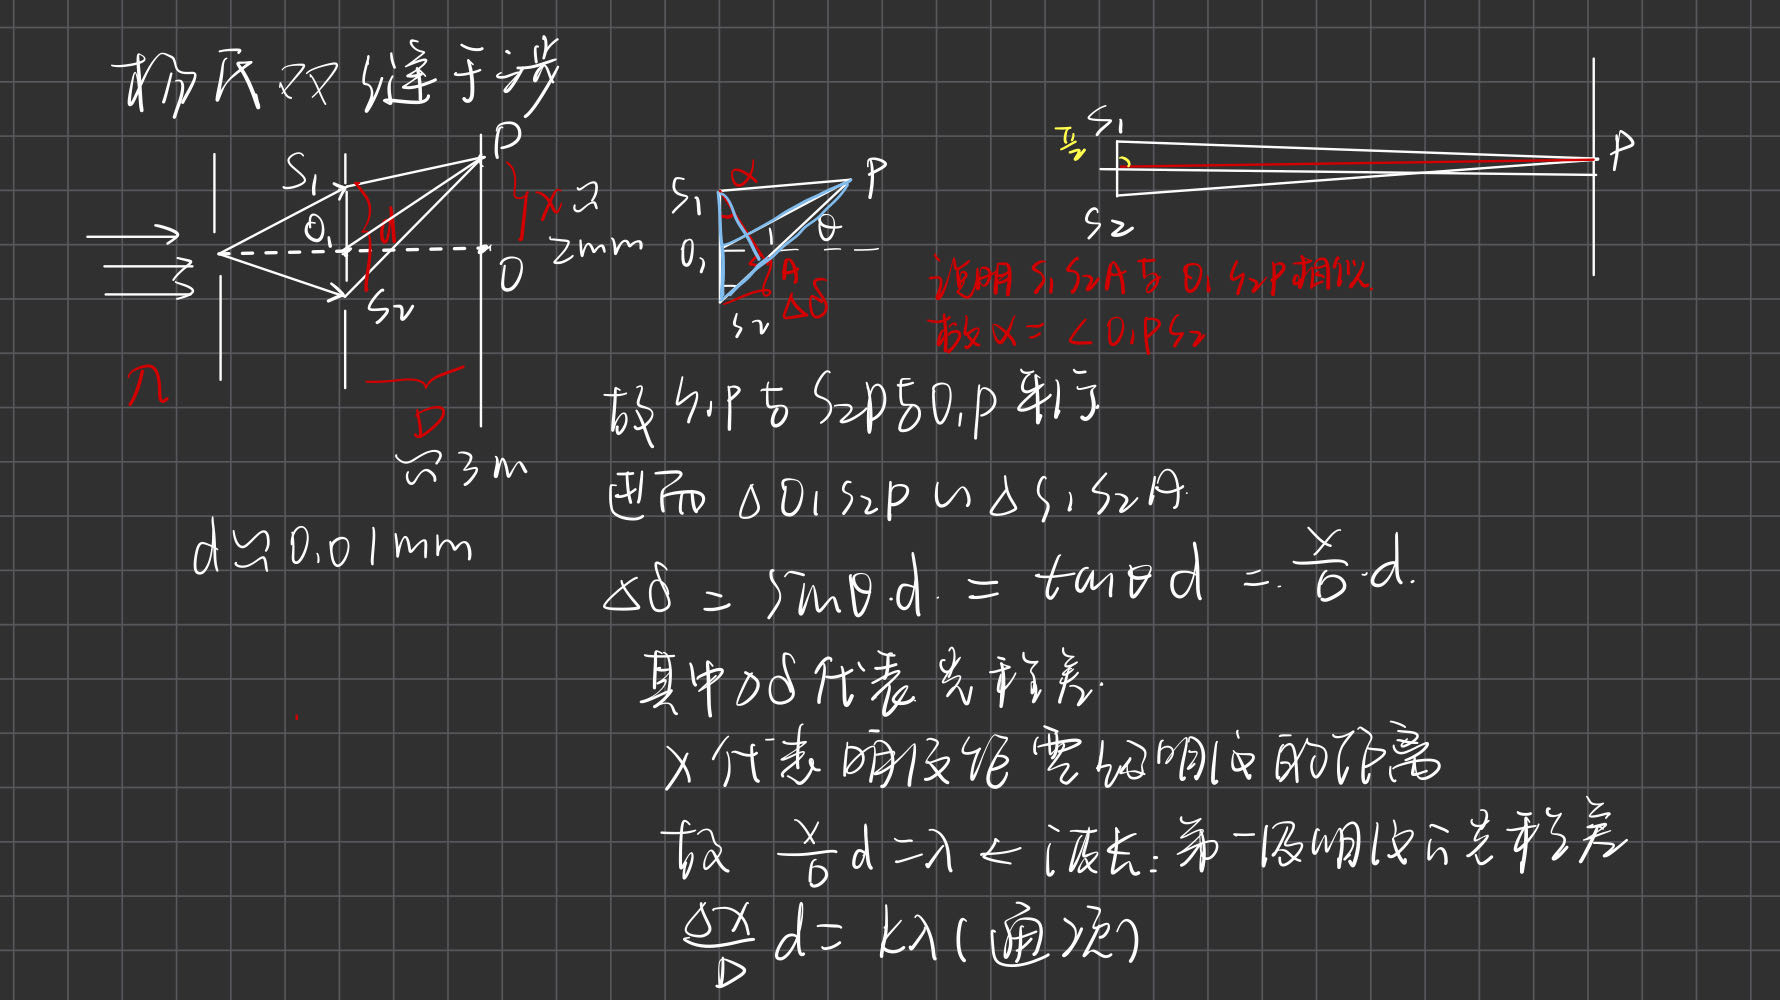 杨氏双缝干涉
S₁
O₁
S₂
d
P
x ≈
2mm
O
n
D
≈3m
d≈0.01mm
S₁
α
P
θ
O₁
A
Δδ
S₂
π/2
S₁
S₂
P
说明S₁S₂A与O₁S₂P相似
故α=∠O₁PS₂
故S₁P与S₂P与O₁P平行
进而ΔO₁S₂P∽ΔS₁S₂A.
Δδ = sinθ·d. = tanθ d =. x/D·d.
其中Δδ代表光程差.
x代表明纹距零级明纹的距离
故 x/D d=λ ← 波长:第一级明纹的光程差
Δx/D d= kλ(通项)